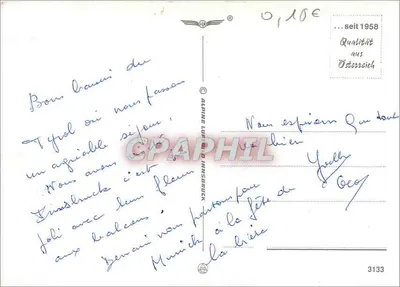 0,10€
...seit 1958
Qualität
aus
Österreich
Bons baisers du
Tyrol où nous passons
un agréable séjour,
Nous avons
Innsbruck c'est
joli avec leurs fleurs
aux balcons.
Demain nous partons pour
Munich, à la fête de
la bière
Nous espérons que tout
va bien
Yvette
© ALPINE LUFTBILD INNSBRUCK
CPAPHIL
3133